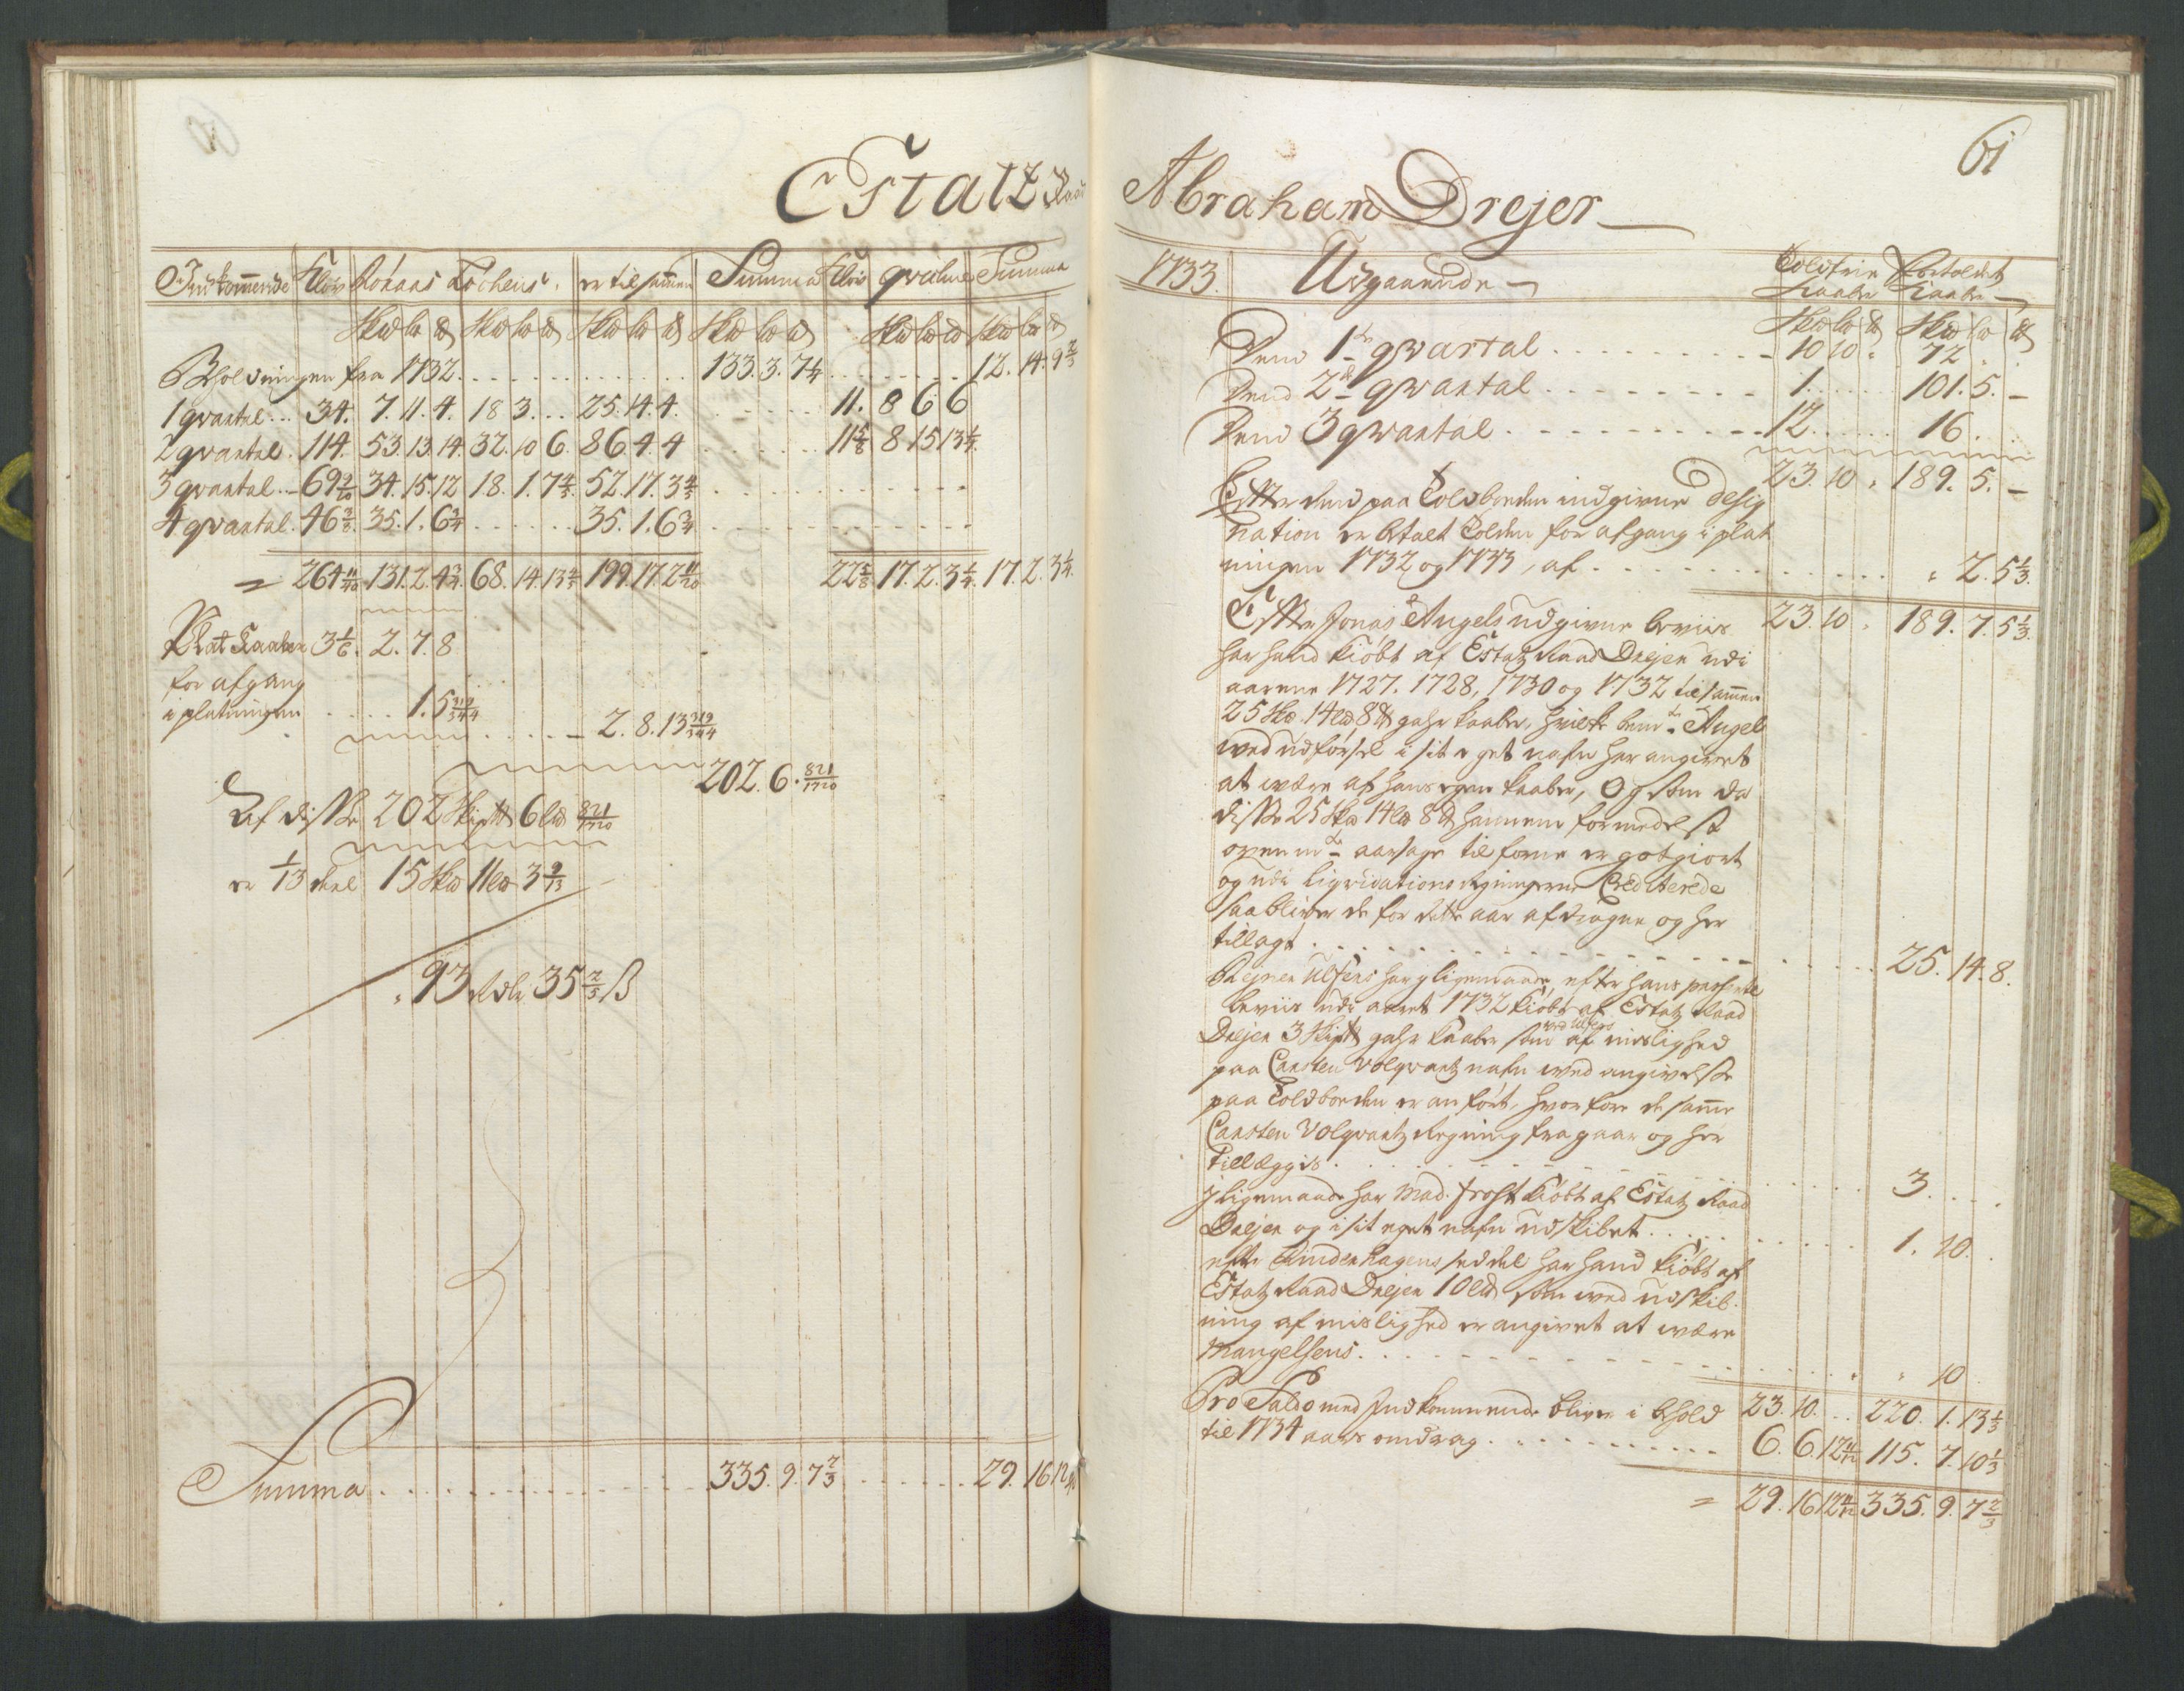 Estatz Raad
Indkommende Kløw Røraas Løckens er tilsammen Summa Kløw qvalne Summa
Skd lb ℔ Skd lb ℔ Skd lb ℔ Skd lb ℔ Skd lb ℔ Skd lb ℔
Beholdningen fra 1732 . . . 133. 3. 7 1/4 . . . 12. 14. 9 2/3
1 qvartal . . . 34. 7. 11. 4. 18 3. . . 25. 14. 4. . . . 11. 8 6 6
2 qvartal . 114. 53. 13. 14. 32. 10 6. 86 4. 4 . . . 11 5/8 8 15 13 1/4.
3 qvartal . . 69 9/10 34. 15. 12 18. 1. 7 4/5. 52. 17. 3 4/5 . . .
4 qvartal . 46 3/8. 35. 1. 6 3/4 . . . 35. 1. 6 3/4 . . .
= 264 11/40 131. 2. 4 3/4. 68. 14. 13 4/5 199. 17. 2 11/20 22 5/8 17. 2. 3 1/4. 17. 2. 3 1/4.
Plat Kaaber 3 1/6. 2. 7. 8
for afgang
i platningen . . . 1. 5 319/344
. . . 2. 8. 13 319/344
202. 6. 821/1720
Af disse 202 Skip℔ 6 lb 821/1720
er 1/13 deel 15 Skd 11 lb 3 9/13
93 Rdlr 35 2/5 ß
Summa . . . 335. 9. 7 2/3 . . . 29. 16 12
61
Abraham Drejer
1733. Udgaaende Toldfrie Kaaber Fortoldet Kaaber
Skd lb ℔ Skd lb ℔
Dend 1te qvartal . . . 10 10 . 72 .
Dend 2de qvartal . . . 1. . . . 101. 5. –
Dend 3 qvartal . . . 12 . . . 16 . .
23. 10 . 189. 5. –
Efter dend paa Toldboeden indgivne Desig
nation er betalt Tolden for afgang i plat
ningen 1732 og 1733, af . . . 2. 5 1/3.
23. 10 . 189. 7. 5 1/3
Efter Jonas Angels udgivne beviis
har hand kiøbt af Estatz Raad Drejer udi
aarene 1727. 1728, 1730 og 1732 tilsammen
25 Skd. 14 lb 8 ℔ gahr kaaber, hvilke bemte Angel
wed udførsel i sit eget nafn har angivet
at være af hans egen kaaber, Og som da
disse 25 Skd 14 lb 8 ℔ hannem formedelst
ovenmte aarsage tilforne er gotgiort
og udi Liqvidations Regningerne Crediterede
saa bliver de for dette aar afdragne og her
tillagt . . . 25. 14. 8.
Rejner Ulfers har j ligemaade, efter hans
beviis udi aaret 1732 kiøbt af Estatz Raad
Drejer 3 Skip℔ gahr Kaaber som ved Ulfers af mislighed
paa Carsten Volqvartz nafn wed angivelse
paa Toldboeden er anført, hvorfore de samme
Carsten Volqvartz Regning fragaar og her
tillæggis . . . 3. . .
J ligemaade har Mad. frost kiøbt af Estatz Raad
Drejer og i sit eget nafn udskibet . . . 1. 10 .
efter Lindenhagens seddel har hand kiøbt af
Estatz Raad Drejer 10 lb som wed udskib-
ning af mislighed er angivet at være
Mangelsens . . . 10 .
23. 10. . . 220. 1. 13 1/3
Pro Saldo med Indkommende bliver i behold
til 1734 aars omdrag . . . 6. 6. 12 11/12 115. 7. 10 1/3
= 29. 16 12 11/12 335. 9. 7 2/3